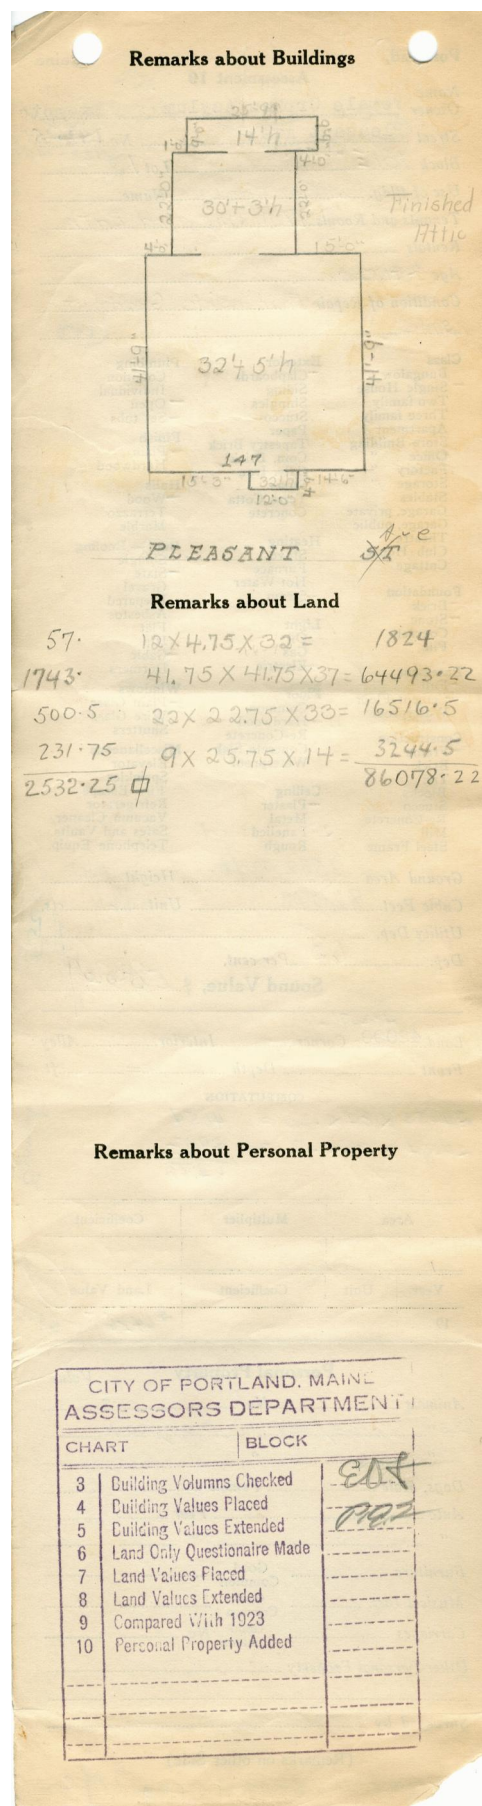 Remarks about Buildings
14'h
4'-0"
22'-0"
30'+3'h
22'-0"
Finished
Attic
15'-0"
41'-9"
32'+5'h
41'-9"
147
15'-3"
32'h
14'-6"
12'-0"
PLEASANT ST Ave
Remarks about Land
57. 12X4.75X32= 1824
1743. 41.75X41.75X37= 64493.22
500.5 22X22.75X33= 16516.5
231.75 9X25.75X14= 3244.5
2532.25 86078.22
Remarks about Personal Property
CITY OF PORTLAND, MAINE
ASSESSORS DEPARTMENT
CHART BLOCK
3 Building Volumns Checked
4 Building Values Placed
5 Building Values Extended
6 Land Only Questionaire Made
7 Land Values Placed
8 Land Values Extended
9 Compared With 1923
10 Personal Property Added